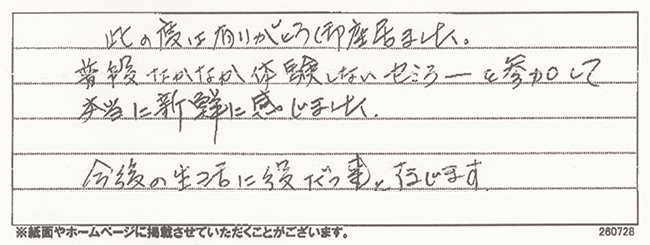 此の度は有りがとう御座居ました。
普段なかなか体験しないセミナーを参加して
本当に新鮮に感じました。
今後の生活に役だつ事と存じます。
※紙面やホームページに掲載させていただくことがございます。
260728